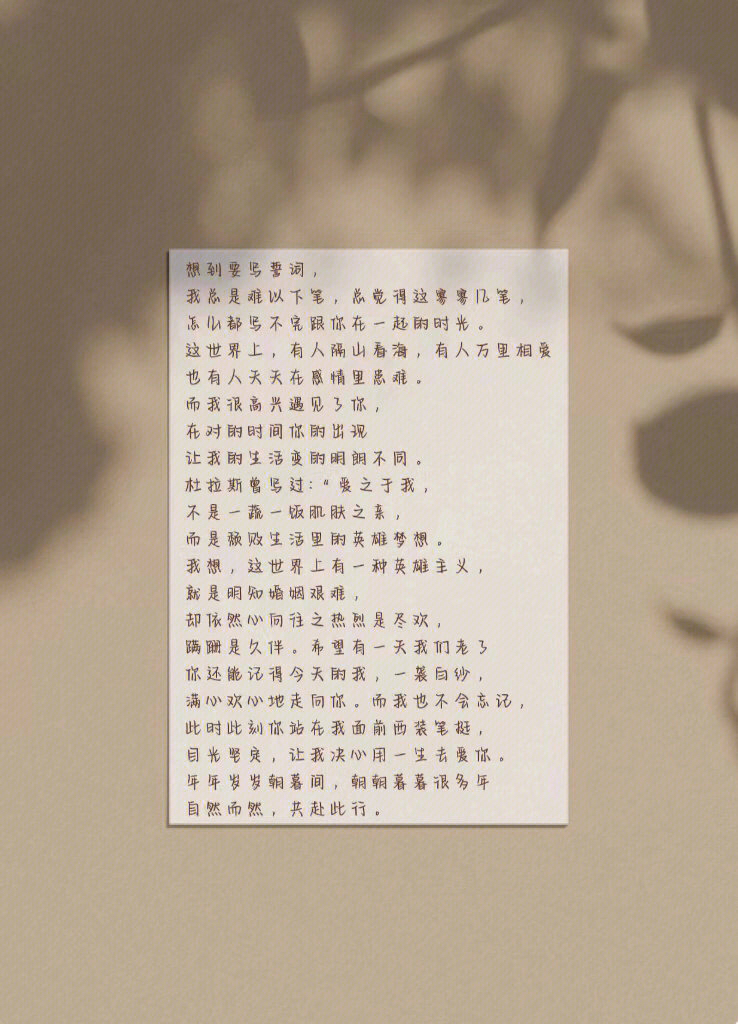 想到要写誓词，
我总是难以下笔，总觉得这寥寥几笔，
怎么都写不完跟你在一起的时光。
这世界上，有人隔山看海，有人万里相爱
也有人天天在感情里患难。
而我很高兴遇见了你，
在对的时间你的出现
让我的生活变的明朗不同。
杜拉斯曾写过：“爱之于我，
不是一蔬一饭肌肤之亲，
而是颓败生活里的英雄梦想。
我想，这世界上有一种英雄主义，
就是明知婚姻艰难，
却依然心向往之热烈是尽欢，
蹒跚是久伴。希望有一天我们老了
你还能记得今天的我，一袭白纱，
满心欢心地走向你。而我也不会忘记，
此时此刻你站在我面前西装笔挺，
目光坚定，让我决心用一生去爱你。
年年岁岁朝暮间，朝朝暮暮很多年
自然而然，共赴此行。